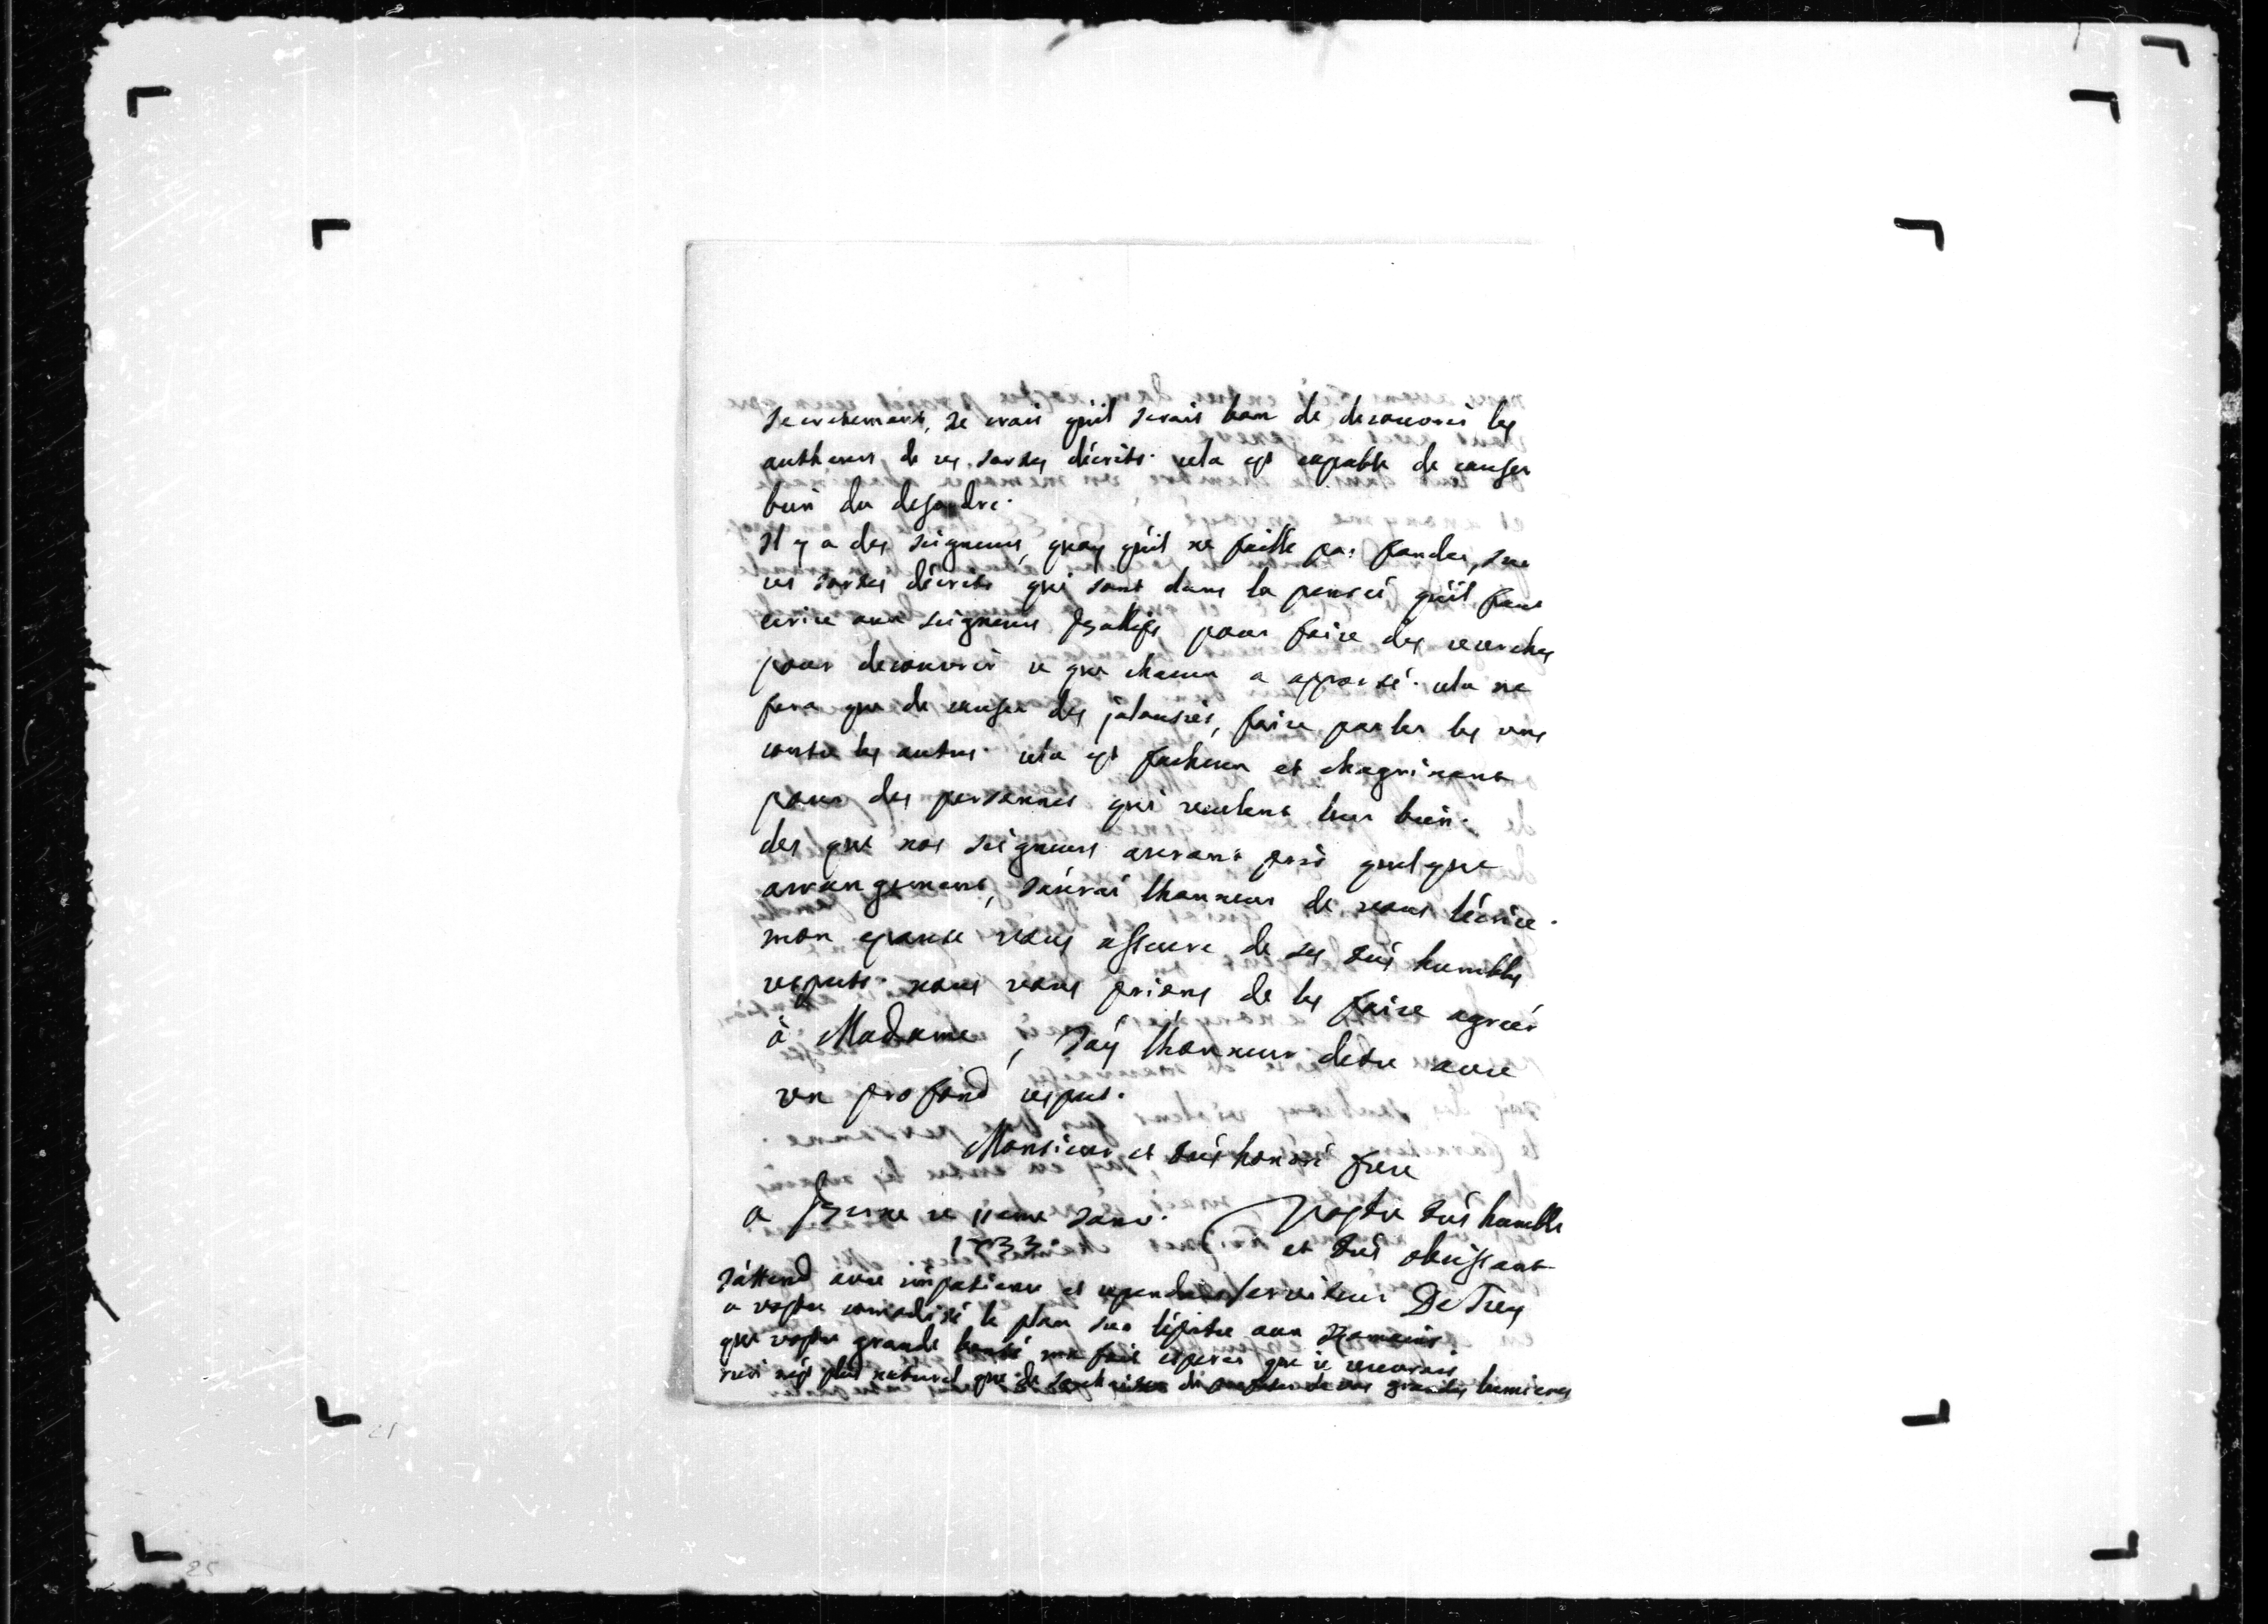 secretement, Je crois qu'il serait bon de decouvrir les
autheurs de ces sortes décrits. cela est capable de causer
bien du desordre.
Il y a des seigneurs, quoy qu'il ne faille pas fonder, sur
ces sortes décrits qui sont dans la pensée qu'il faut
ecrire aux seigneurs Baillifs pour faire des recerches
pour decouvrir ce que chacun a apporté. cela ne
fera que de causer des jalousies, faire parler les uns
contre les autres. cela est facheux et chagrinant
pour des personnes qui veulent leur bien.
des que nos seigneurs auront pris quelque
arrangement, J'aurai lhonneur de vous lécrire.
mon epouse vous asseure de ses très humbles
respects. nous vous prions de les faire agréer
à Madame, J'ay lhonneur detre avec
un profond respect.
Monsieur et très honoré frere
a Berne ce 11eme Janv. Vostre très humble
1733. et très obeissant
J'attend avec impatience et serviteur DeTrey
a vostre comodité le plan sur lépitre aux Romains
que vostre grande bonté me fait esperer que je recevrais
rien n'est plus naturel que de souhaiter de profiter de vos grandes lumieres